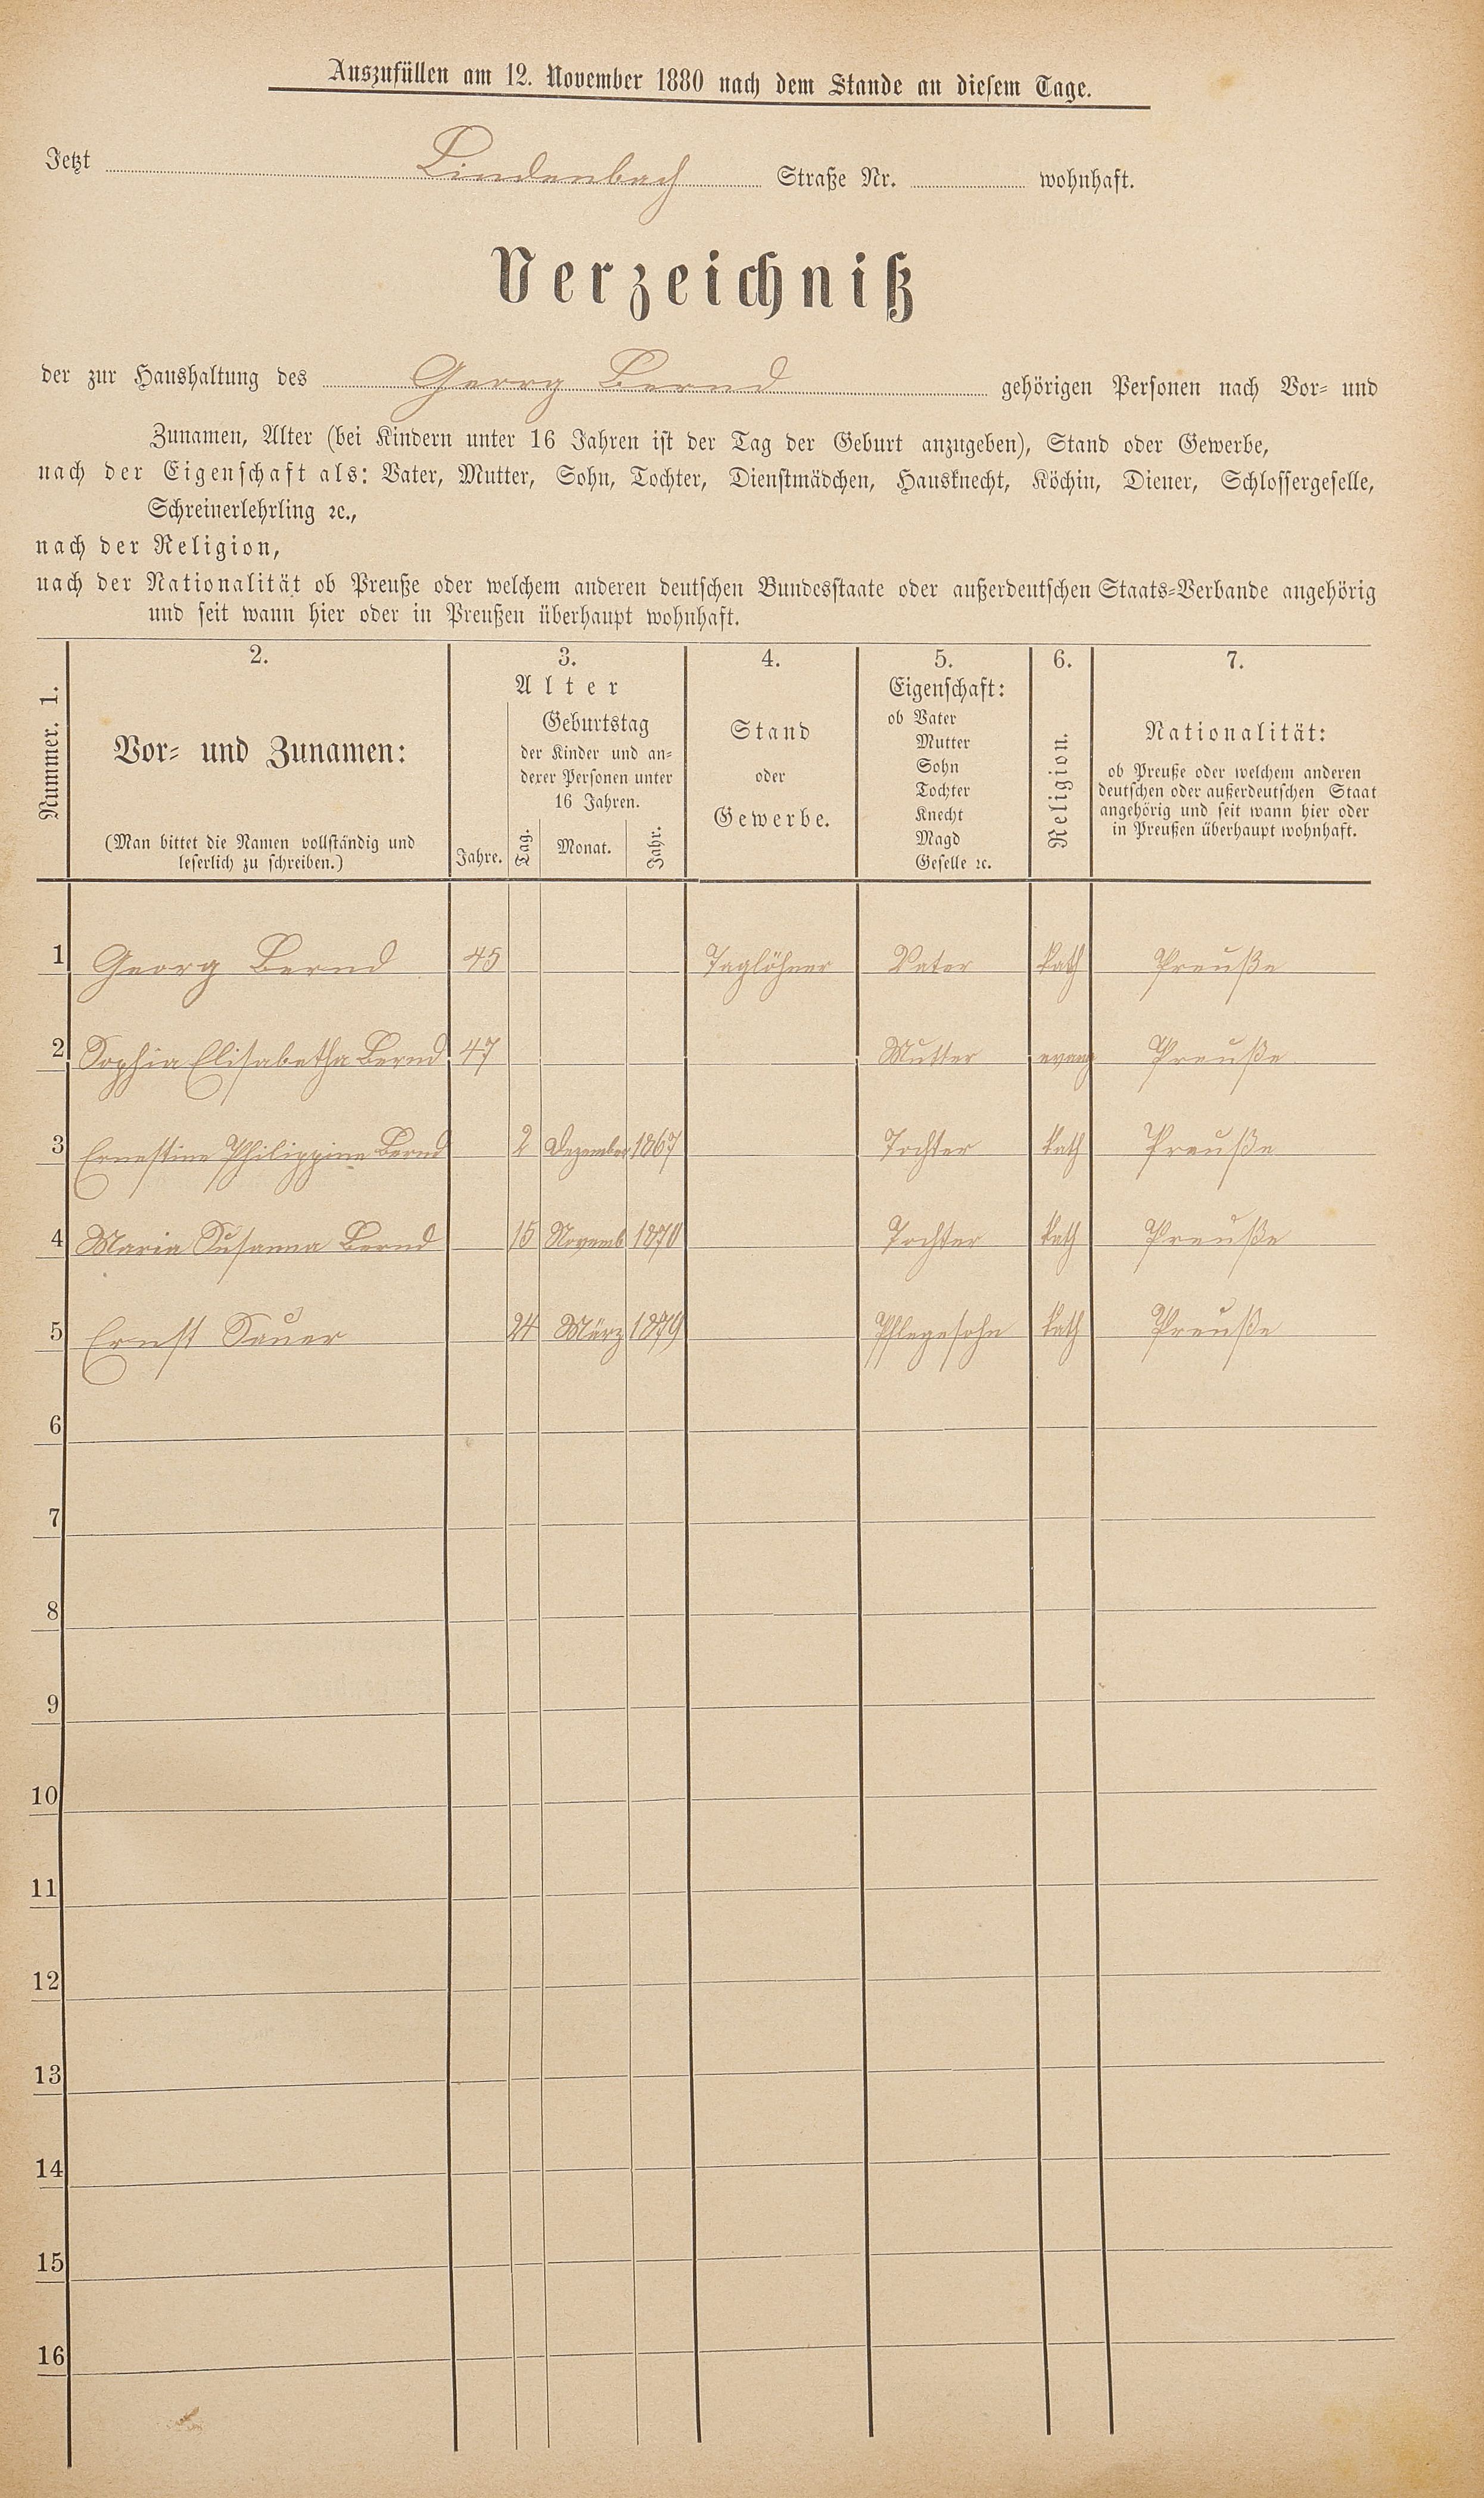 Auszufüllen am 12. November 1880 nach dem Stande an diesem Tage.
Jetzt Lindenbach Straße Nr. wohnhaft.
Verzeichniß
der zur Haushaltung des Georg Bernd gehörigen Personen nach Vor- und
Zunamen, Alter (bei Kindern unter 16 Jahren ist der Tag der Geburt anzugeben), Stand oder Gewerbe,
nach der Eigenschaft als: Vater, Mutter, Sohn, Tochter, Dienstmädchen, Hausknecht, Köchin, Diener, Schlossergeselle,
Schreinerlehrling ꝛc.,
nach der Religion,
nach der Nationalität ob Preuße oder welchem anderen deutschen Bundesstaate oder außerdeutschen Staats-Verbande angehörig
und seit wann hier oder in Preußen überhaupt wohnhaft.
Nummer. 1.
2.
Vor- und Zunamen:
(Man bittet die Namen vollständig und
leserlich zu schreiben.)
3.
Alter
Jahre.
Geburtstag
der Kinder und an-
derer Personen unter
16 Jahren.
Tag. Monat. Jahr.
4.
Stand
oder
Gewerbe.
5.
Eigenschaft:
ob Vater
Mutter
Sohn
Tochter
Knecht
Magd
Geselle ꝛc.
6.
Religion.
7.
Nationalität:
ob Preuße oder welchem anderen
deutschen oder außerdeutschen Staat
angehörig und seit wann hier oder
in Preußen überhaupt wohnhaft.
1 Georg Bernd 45 Taglöhner Vater kath Preuße
2 Sophia Elisabetha Bernd 47 Mutter evang Preuße
3 Ernestine Philippine Bernd 2 Dezember 1867 Tochter kath Preuße
4 Maria Susanna Bernd 15 Novemb 1870 Tochter kath Preuße
5 Ernst Sauer 24 März 1879 Pflegesohn kath Preuße
6
7
8
9
10
11
12
13
14
15
16